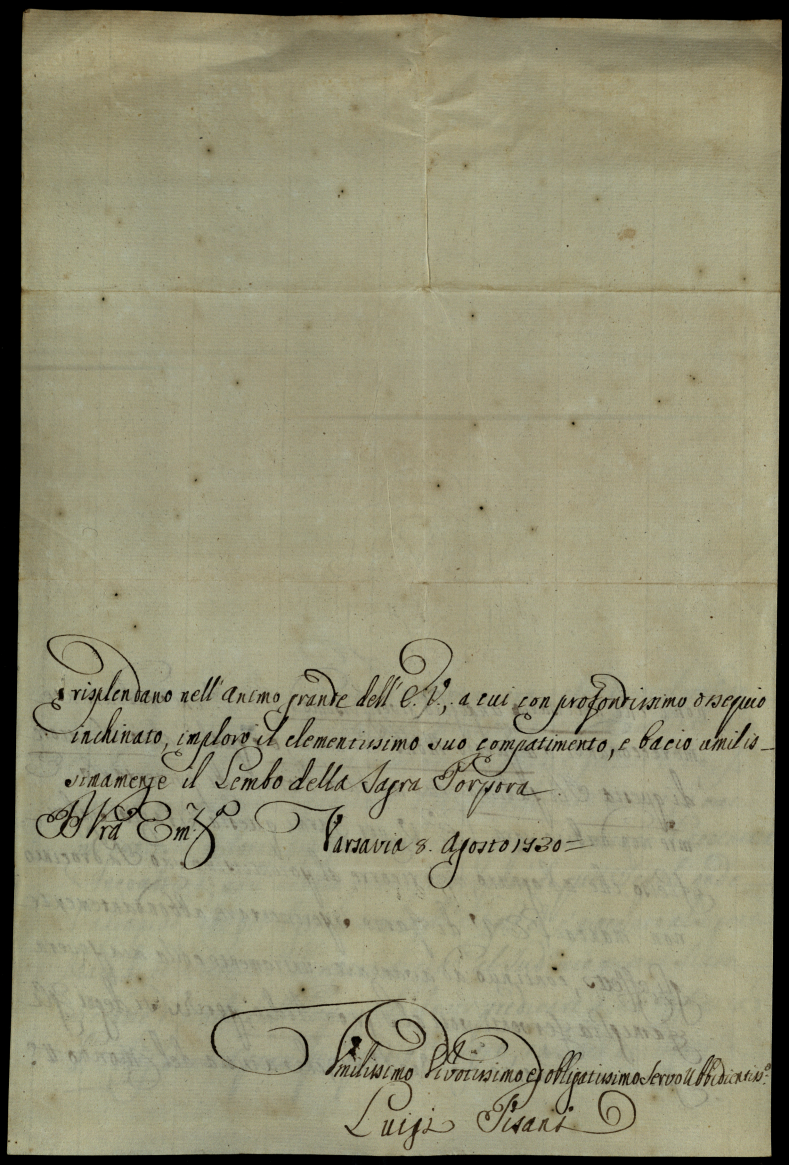 risplendano nell'animo grande dell'E. V., a cui con profondissimo ossequio
inchinato, imploro il clementissimo suo compatimento, e bacio umilis-
simamente il Lembo della Sagra Porpora
Vrã Emza Varsavia 8. Agosto 1730=
Umilissimo Divotissimo ed obligatissimo Servo Ubbidientissº
Luigi Pisani